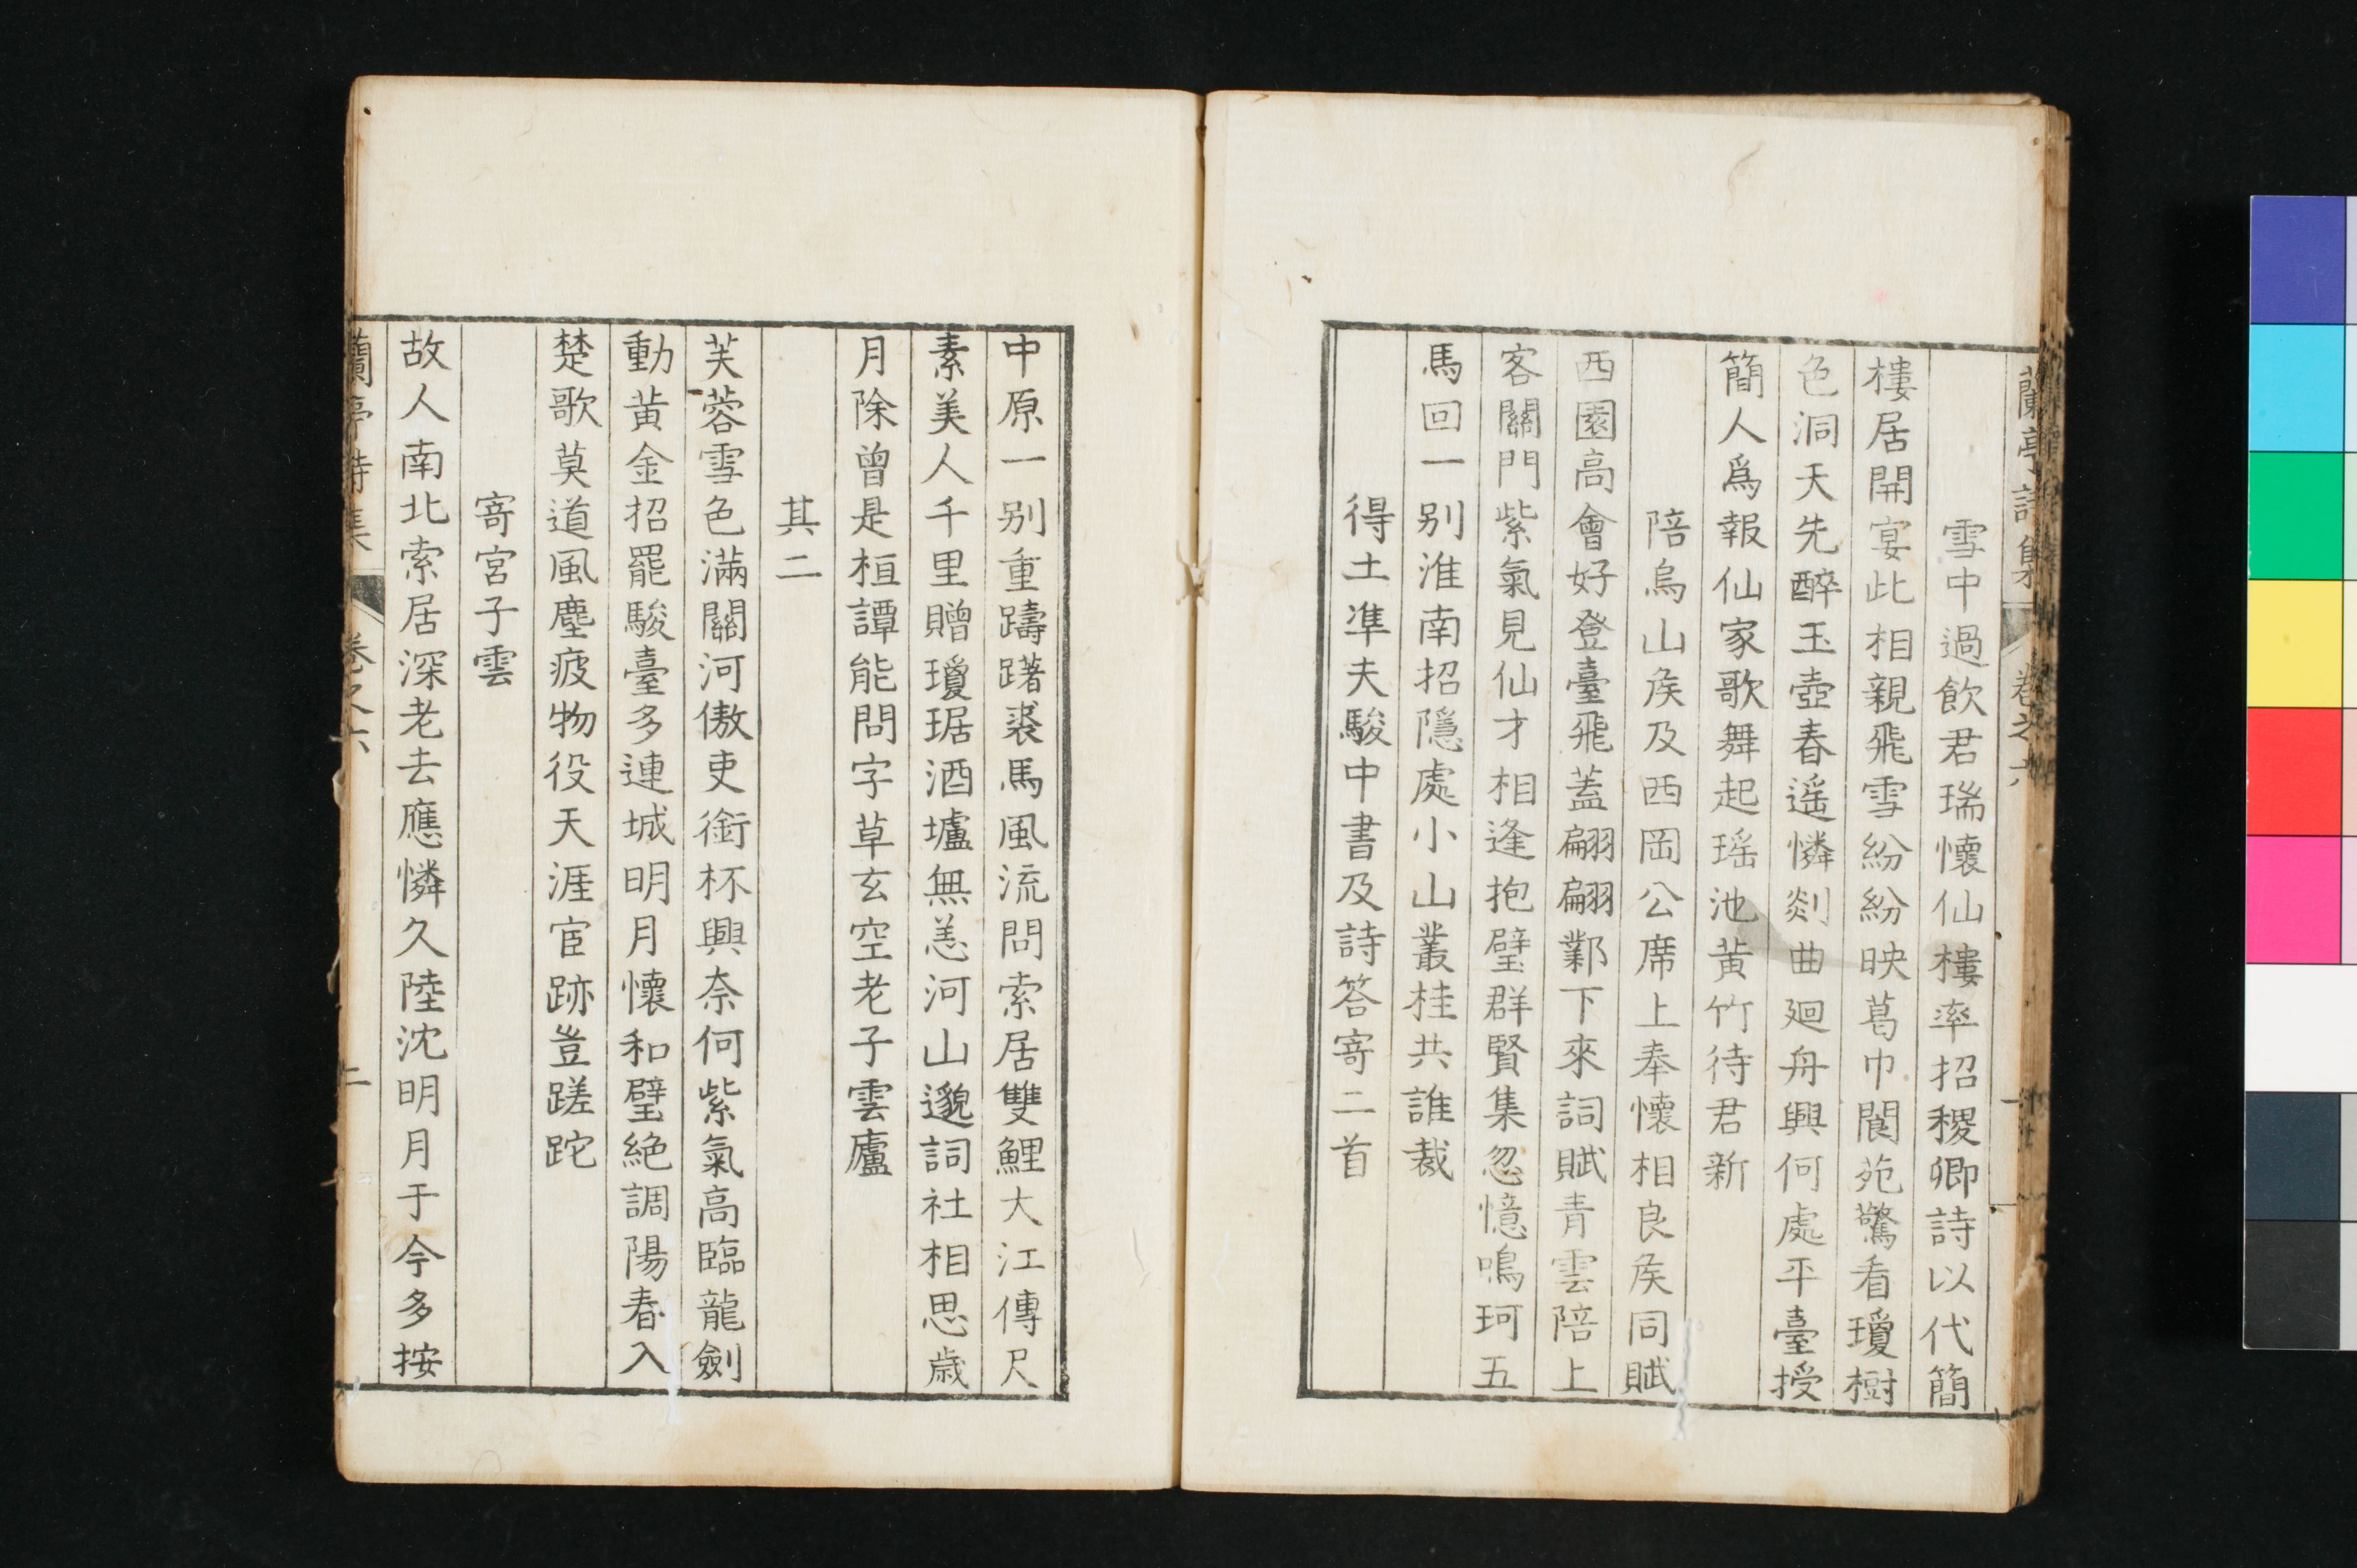 蘭亭詩集
卷之六
雪中過飲君瑞懷仙樓率招稷卿詩以代簡
樓居開宴此相親飛雪紛紛映葛巾閬苑驚看瓊樹
色洞天先醉玉壺春遥憐剡曲廻舟興何處平臺授
簡人爲報仙家歌舞起瑶池黃竹待君新
陪烏山矦及西岡公席上奉懷相良矦同賦
西園高會好登臺飛蓋翩翩鄴下來詞賦青雲陪上
客關門紫氣見仙才相逢抱璧群賢集忽憶鳴珂五
馬回一别淮南招隱處小山叢桂共誰裁
得土準夫駿中書及詩答寄二首
中原一别重躊躇裘馬風流問索居雙鯉大江傳尺
素美人千里贈瓊琚酒壚無恙河山邈詞社相思歲
月除曾是桓譚能問字草玄空老子雲廬
其二
芙蓉雪色滿關河傲吏銜杯興奈何紫氣高臨龍劍
動黃金招罷駿臺多連城明月懷和璧絶調陽春入
楚歌莫道風塵疲物役天涯宦跡豈蹉跎
寄宮子雲
故人南北索居深老去應憐久陸沈明月于今多按
蘭亭詩集
卷之六